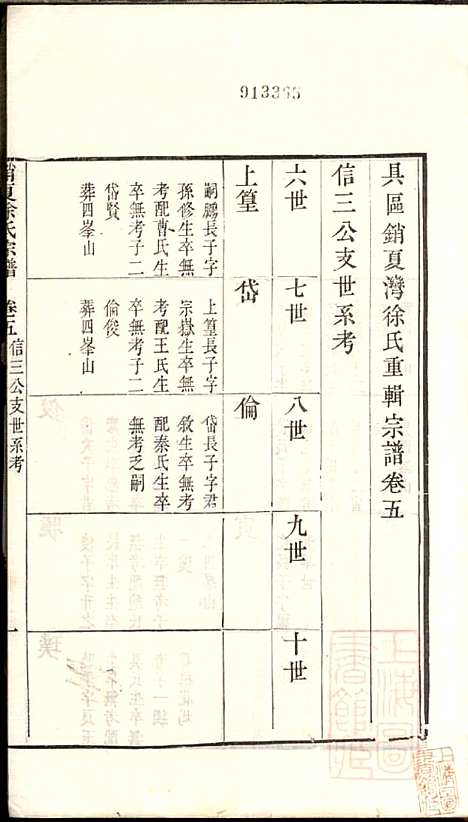 913365
具區銷夏灣徐氏重輯宗譜卷五
信三公支世系考
六世
七世
八世
九世
十世
上篁
嗣鵬長子字
孫修生卒無
考配曹氏生
卒無考子二
岱賢
葬四峯山
岱
上篁長子字
宗嶽生卒無
考配王氏生
卒無考子二
倫俊
葬四峯山
倫
岱長子字君
敘生卒無考
配秦氏生卒
無考乏嗣
銷夏徐氏宗譜
卷五 信三公支世系考
一
上海圖書館藏